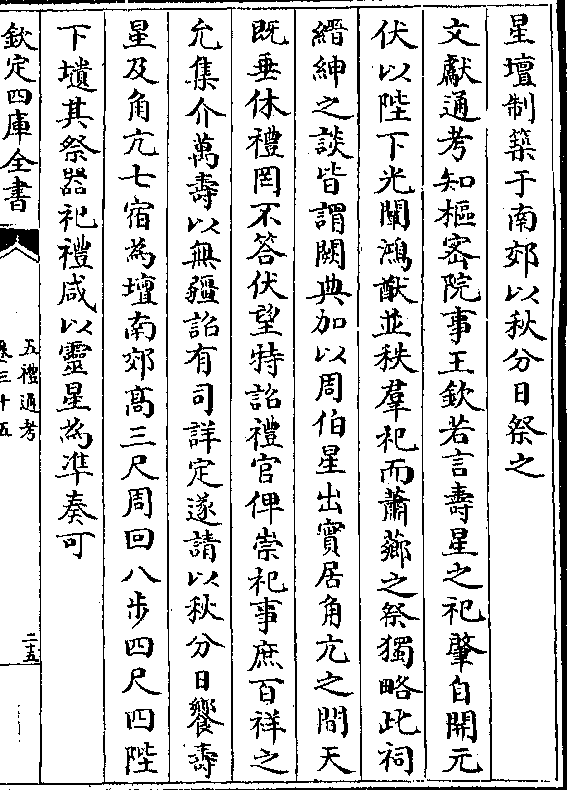 星壇制築于南郊以秋分日祭之
文獻通考知樞密院事王欽若言壽星之祀肇自開元
伏以陛下光闡鴻猷並秩羣祀而蕭薌之祭獨略此祠
縉紳之談皆謂闕典加以周伯星出實居角亢之間天
既垂休禮罔不答伏望特詔禮官俾崇祀事庶百祥之
允集介萬壽以無疆詔有司詳定遂請以秋分日饗壽
星及角亢七宿為壇南郊髙三尺周回八步四尺四陛
下壝其祭器祀禮咸以靈星為凖奏可
欽定四庫全書
五禮通考
卷三十五
二五